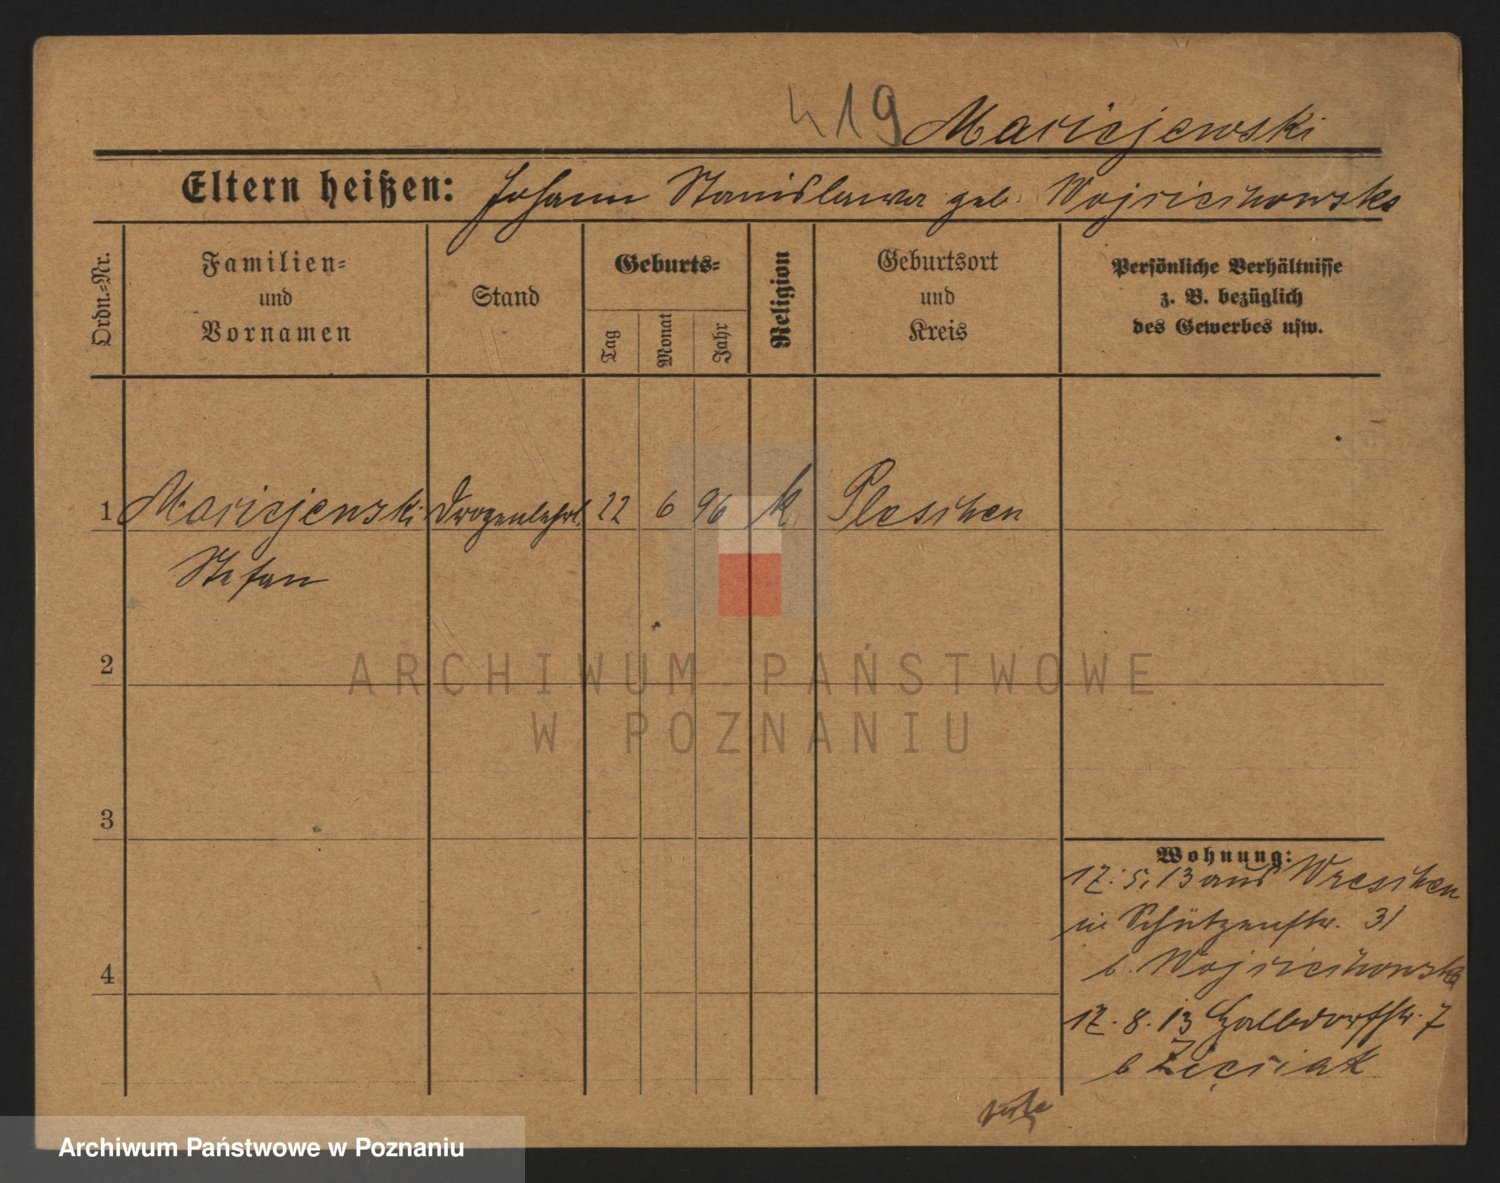 419 Maciejewski
Eltern heißen: Johann Stanislawa geb. Wojciechowska
Ordn.-Nr.
Familien-
und
Vornamen
Stand
Geburts-
Tag
Monat
Jahr
Religion
Geburtsort
und
Kreis
Persönliche Verhältnisse
z. B. bezüglich
des Gewerbes usw.
1 Maciejewski Drogenlehrl. 22 6 96 k. Pleschen
Stefan
2
3
4
Wohnung:
17. 5. 13 aus Wreschen
in Schützenstr. 31
b. Wojciechowska
17. 8. 13 Halbdorfstr. 7
b Zięciak
ARCHIWUM PAŃSTWOWE
W POZNANIU
Archiwum Państwowe w Poznaniu